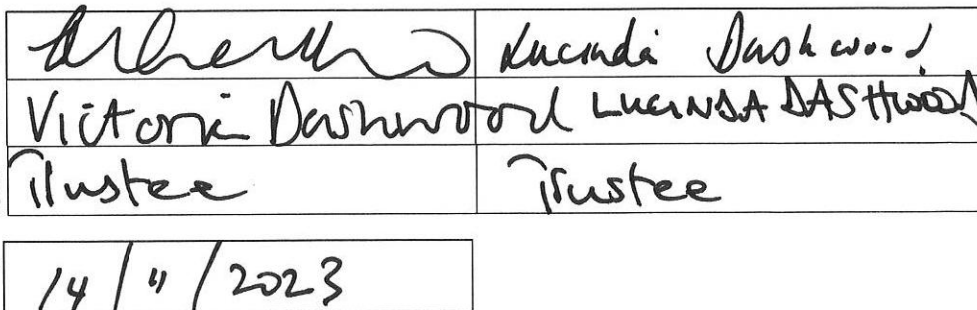 Lucinda Dashwood
Victoria Dashwood LUCINDA DASHWOOD
Trustee Trustee
14/11/2023